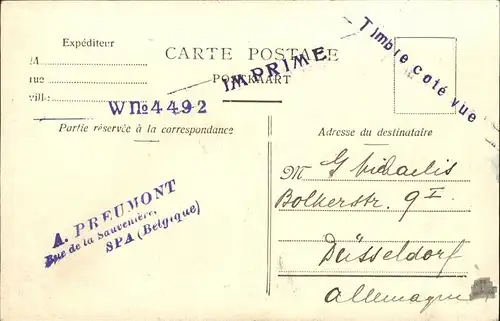 Expéditeur
M
rue
ville
CARTE POSTALE
POSTKAART
IMPRIMÉ
Timbre coté vue
W No 4492
Partie réservée à la correspondance
Adresse du destinataire
A. PREUMONT
Rue de la Sauvenière,
SPA (Belgique)
M G Michaelis
Bolkerstr. 9 I.
Düsseldorf
Allemagne